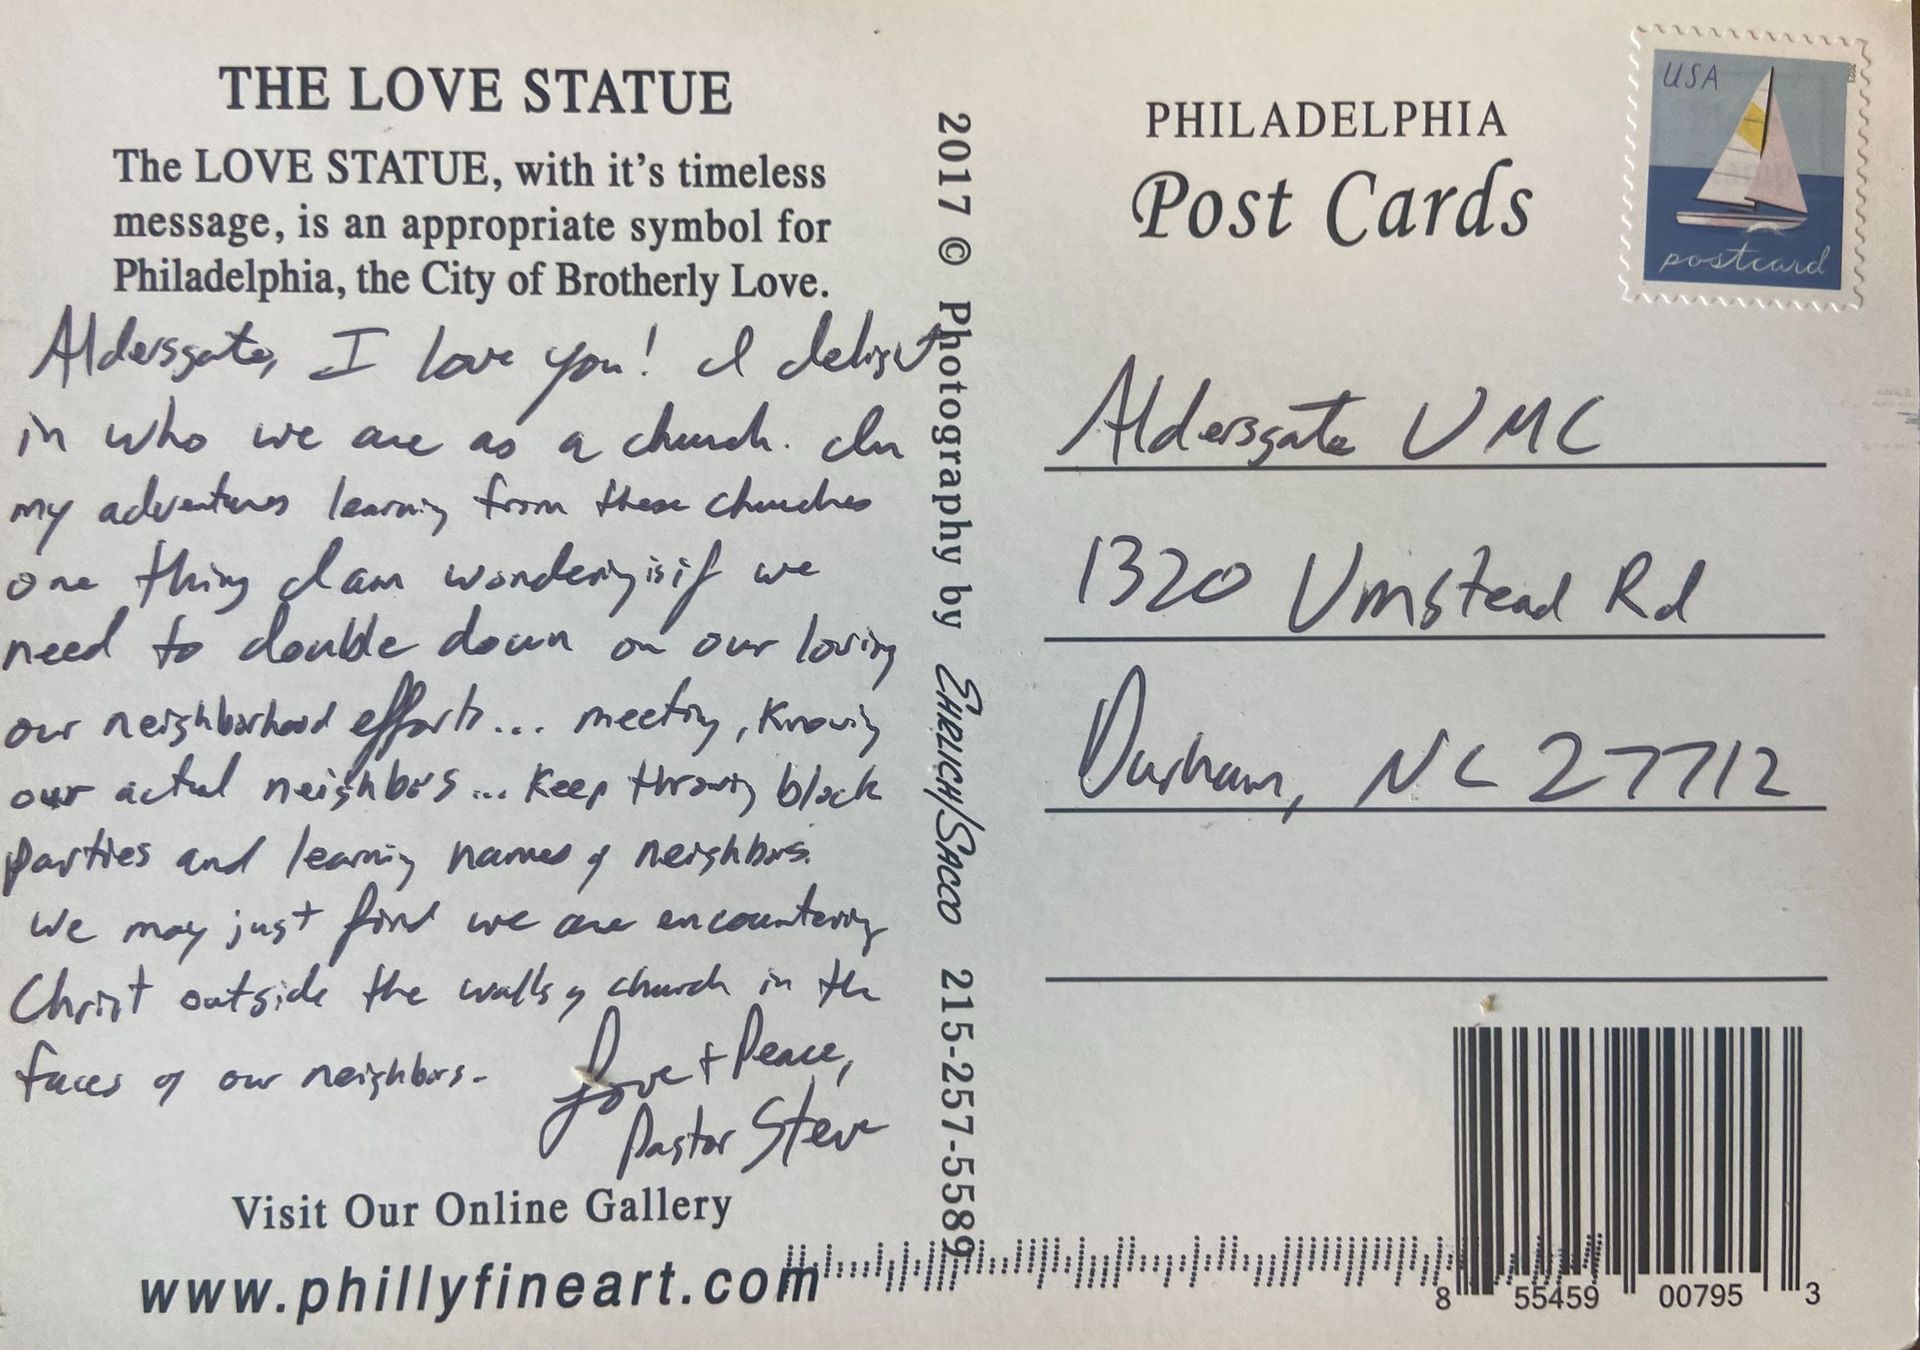 THE LOVE STATUE
The LOVE STATUE, with it's timeless
message, is an appropriate symbol for
Philadelphia, the City of Brotherly Love.
Aldersgate, I love you! I delight
in who we are as a church. In
my adventures learning from these churches
one thing I am wondering is if we
need to double down on our loving
our neighborhood efforts... meeting, knowing
our actual neighbors... keep throwing block
parties and learning names of neighbors.
We may just find we are encountering
Christ outside the walls of church in the
faces of our neighbors.
Love + Peace,
Pastor Steve
Visit Our Online Gallery
www.phillyfineart.com
2017 © Photography by EHRLICH/SACCO 215-257-5589
PHILADELPHIA
Post Cards
USA
2023
postcard
Aldersgate UMC
1320 Umstead Rd
Durham, NC 27712
8 55459 00795 3